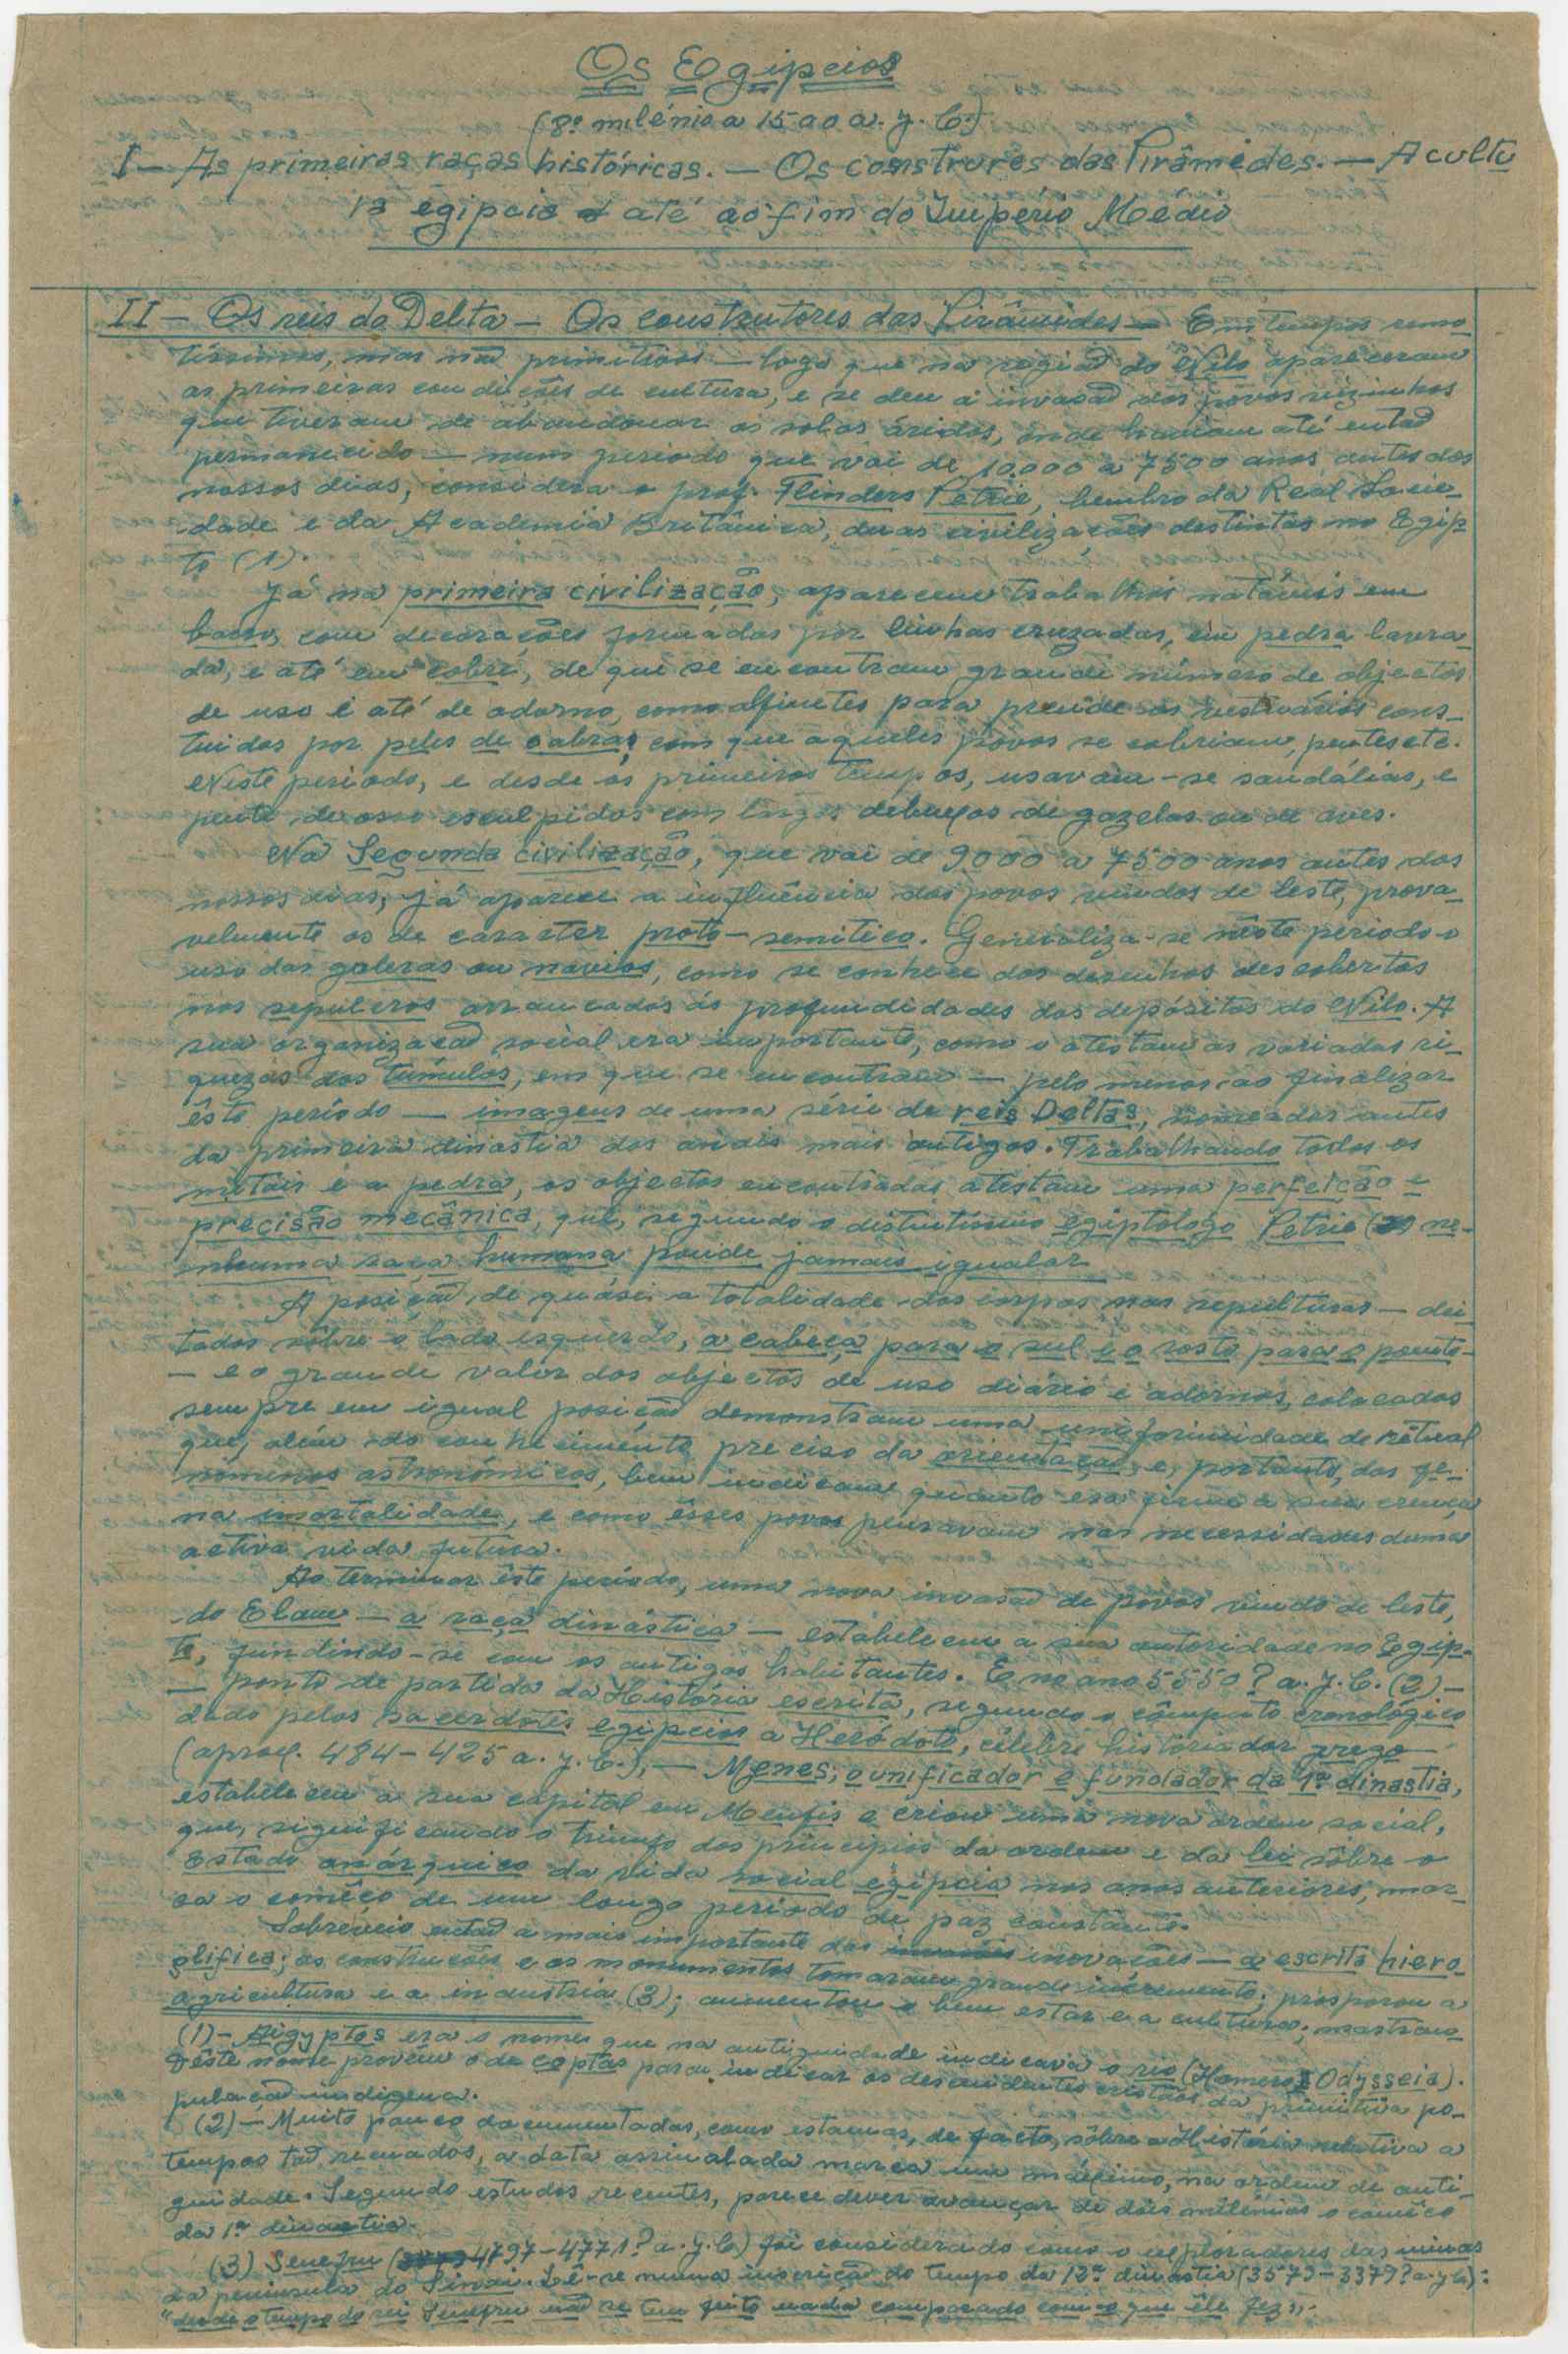 Os Egipcios
(8º milénio a 1500 a. J. C.)
I — As primeiras raças históricas. — Os construres das Pirâmides. — A cultu
ra egipcia até ao fim do Império Médio
II — Os reis do Delta — Os construtores das Pirâmides — Em tempos remo
tíssimos, mas não primitivos — logo que na região do Nilo apareceram
as primeiras condições de cultura, e se deu a invasão dos povos vizinhos
que tiveram de abandonar os solos áridos, onde haviam até então
permanecido — num periodo que vai de 10.000 a 7500 anos antes dos
nossos dias, considera o prof. Flinders Petrie, membro da Real Socie-
dade e da Academia Britânica, duas civilizações destintas no Egip
to (1).
Já na primeira civilização, aparecem trabalhos notáveis em
barro, com decorações formadas por linhas cruzadas, em pedra lavra-
da, e até em cobre, de que se encontram grande número de objectos
de uso e até de adorno, como alfinetes para prender os vestuários cons-
tuidos por peles de cabras com que aqueles povos se cobriam, pentes etc.
Neste periodo, e desde os primeiros tempos, usavam-se sandálias, e
pente de osso esculpidos com debuxos de gazelas ou de aves.
Na Segunda civilização, que vai de 9000 a 7500 anos antes dos
nossos dias, já aparece a influência dos povos vindos de leste, prova-
velmente os de caracter proto-semitico. Generaliza-se nêste periodo o
uso das galeras ou navios, como se conhece dos desenhos descobertos
nos sepulcros arrancados ás profundidades dos depósitos do Nilo. A
sua organização social era importante, como o atestam as variadas ri-
quezas dos túmulos, em que se encontram — pelo menos ao finalizar
êste período — imagens de uma série de reis Deltas, nomeados antes
da primeira dinastia dos anais mais antigos. Trabalhando todos os
metais e a pedra, os objectos encontrados atestam uma perfeição e
precisão mecânica, que, segundo o distintíssimo egiptologo Petrie ne-
nhuma raça humana poude jamais igualar
A posição de quási a totalidade dos corpos nas sepulturas — dei
tados sôbre o lado esquerdo, a cabeça para o sul e o rosto para o poente-
— e o grande valor dos objectos de uso diário e adornos, colocados
sempre em igual posição demonstram uma uniformidade de ritual
que, além do conhecimento preciso da orientação e, portanto, dos fe-
nómenos astronómicos, bem indicam quanto era firme a sua crença
na imortalidade, e como êsses povos pensavam nas necessidades duma
activa vida futura.
Ao terminar êste período, uma nova invasão de povos vindo de leste,
do Elam — a raça dinástica — estabelecem a sua autoridade no Egip-
to, fundindo-se com os antigos habitantes. E no ano 5550? a. J. C. (2) —
— ponto de partida da História escrita, segundo o cômputo cronológico
dado pelos sacerdotes egipcios a Heródoto, célebre historiador grego
(aprox. 484 – 425 a. J. C.), — Menes, o unificador e fundador da 1ª dinastia,
estabeleceu a sua capital em Menfis e criou uma nova ordem social,
que, significando o triunfo dos principios da ordem e da lei sôbre o
Estado anárquico da vida social egipcia nos anos anteriores, mar-
ca o comêço de um longo periodo de paz constante.
Sobreveio então a mais importante das inovações — a escrita hiero
glifica; as construções e os monumentos tomaram grande incremento; prosperou a
agricultura e a industria (3); aumentou o bem estar e a cultura;
(1) — Aigyptos era o nome que na antiguidade indicava o rio (Homero Odysseia).
Dêste nome provém o de coptas para indicar os descendentes cristãos da primitiva po-
pulação indigena.
(2) — Muito pouco documentadas, como estamos, de facto, sôbre a História relativa a
tempos tão recuados, a data assinalada marca um máximo, na ordem de anti-
guidade. Segundo estudos recentes, parece dever avançar de dois milénios o comêço
da 1ª dinastia.
(3) Senefru (4797 – 4771? a. J. C) foi considerado como o exploradores das minas
da peninsula do Sinai. Lê-se numa inscrição do tempo da 12ª dinastia (3579 – 3379? a. J. C):
"desde o tempo do rei Senefru não se tem feito nada comparado com o que êle fez".